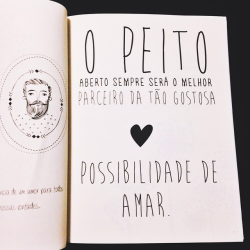 O PEITO
ABERTO SEMPRE SERÁ O MELHOR
PARCEIRO DA TÃO GOSTOSA
POSSIBILIDADE DE
AMAR.
de um amor para todos